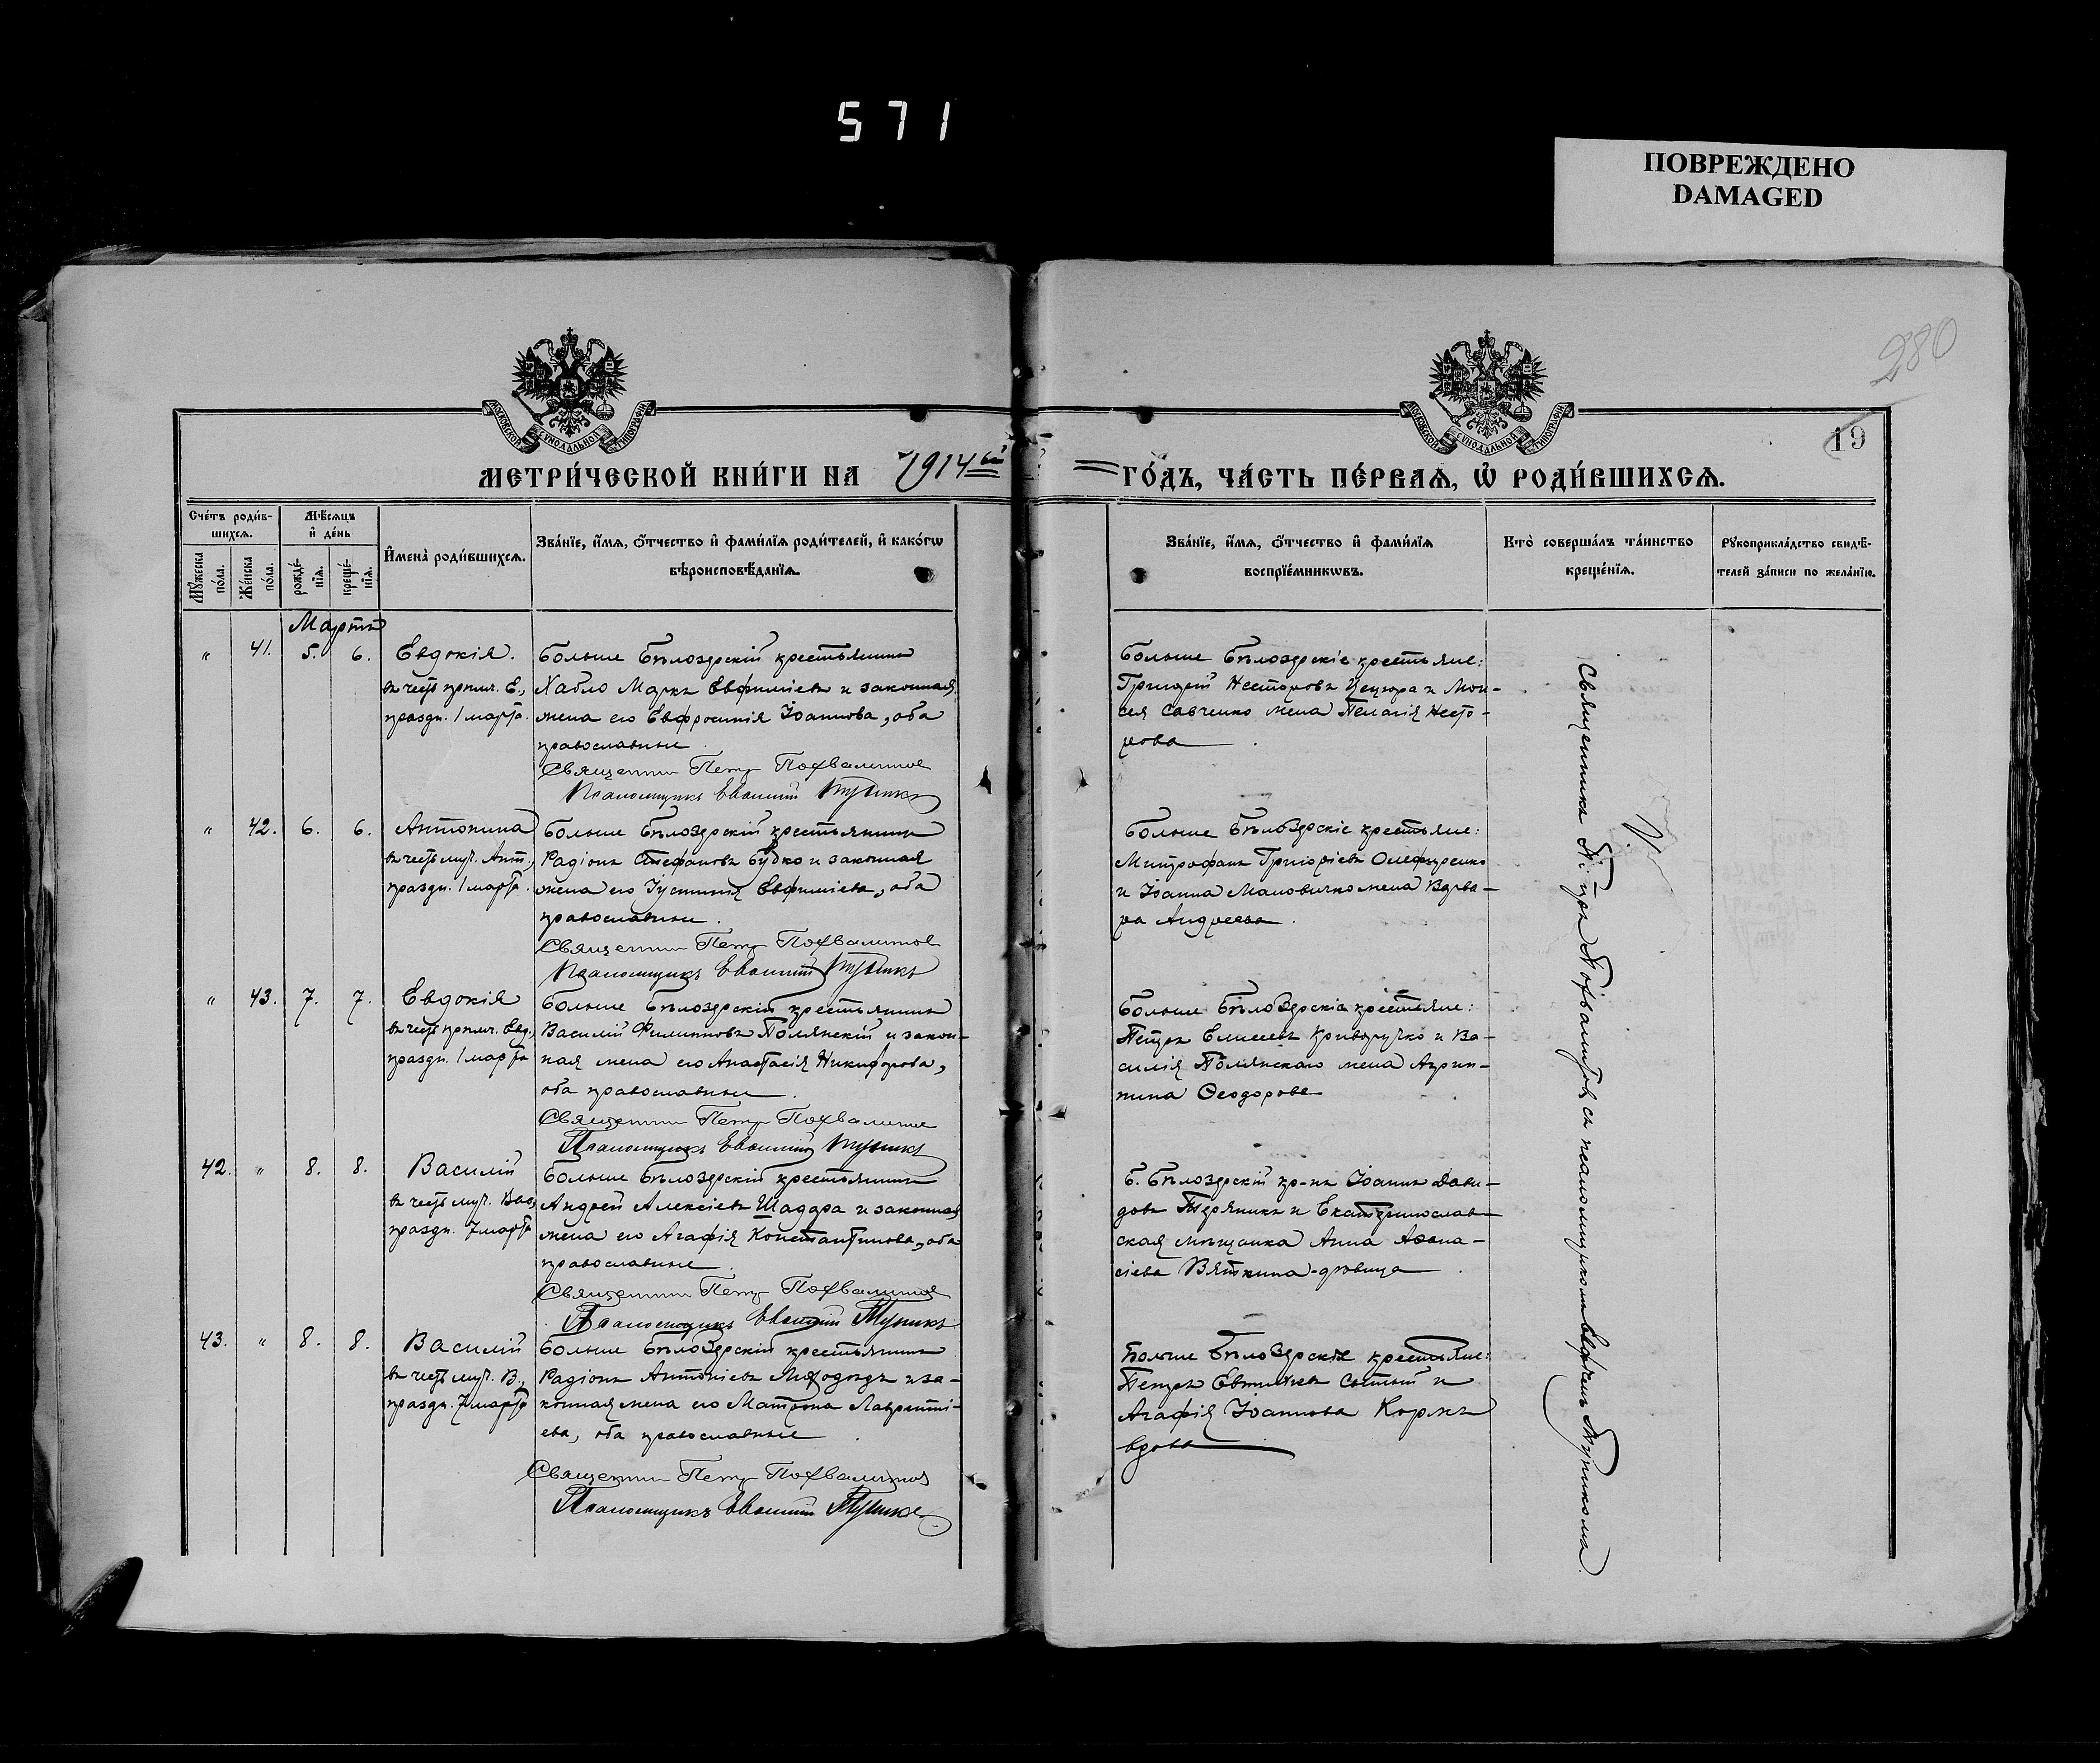 571
ПОВРЕЖДЕНО
DAMAGED
280
19
МОСКОВСКОЙ СѴНОДАЛЬНОЙ ТИПОГРАФІИ
МОСКОВСКОЙ СѴНОДАЛЬНОЙ ТИПОГРАФІИ
МЕТРИ́ЧЕСКОЙ КНИ́ГИ НА 1914ый
ГО́ДЪ, ЧА́СТЬ ПЕ́РВАѦ, Ѡ҆ РОДИ́ВШИХСѦ.
Сче́тъ роди́в-
шихсѧ.
Мѣ́сѧцъ
и҆ де́нь
Мꙋ́жеска
по́ла.
Же́нска
по́ла.
рожде́-
нїѧ.
креще́-
нїѧ.
И҆мена̀ роди́вшихсѧ.
Зва́нїе, и҆́мѧ, ѻ҆́тчество и҆ фами́лїѧ роди́телей, и҆ како́гѡ
вѣроисповѣ́данїѧ.
Зва́нїе, и҆́мѧ, ѻ҆́тчество и҆ фами́лїѧ
воспрїе́мникѡвъ.
Кто̀ соверша́лъ та́инство
креще́нїѧ.
Рꙋкоприкла́дство свидѣ́-
телей за́писи по жела́нїю.
Мартъ
" 41. 5. 6. Евдокія.
въ честь прпмч. Е.,
праздн. 1 марта.
Больше Бѣлозерскій крестьянинъ
Хабло Маркъ Евфиміевъ и законная
жена его Евфросинія Іоаннова, оба
православные.
Священникъ Петр Похвалитов
Псаломщикъ Евфимій Тупикъ
Больше Бѣлозерскіе крестьяне:
Григорій Несторовъ Цецюра и Мои-
сея Савченко жена Пелагія Несто-
рова
" 42. 6. 6. Антонина
въ честь муч. Ант.,
праздн. 1 марта.
Больше Бѣлозерскій крестьянинъ
Радіонъ Стефановъ Будко и законная
жена его Іустинія Евфиміева, оба
православные.
Священникъ Петр Похвалитов
Псаломщикъ Евфимій Тупикъ
Больше Бѣлозерскіе крестьяне:
Митрофанъ Григоріевъ Олефиренко
и Іоанна Маловичко жена Варва-
ра Андреева.
" 43. 7. 7. Евдокія
въ честь прпмч. Евд.,
праздн. 1 марта
Больше Бѣлозерскій крестьянинъ
Василій Филипповъ Полянскій и закон-
ная жена его Анастасія Никифорова,
оба православные.
Священникъ Петр Похвалитов
Псаломщикъ Евфимій Тупикъ
Больше Бѣлозерскіе крестьяне:
Петръ Елисеевъ Криворучко и Ва-
силія Полянскаго жена Агрип-
пина Ѳеодорова
42. " 8. 8. Василій
въ честь муч. Вас.,
праздн. 7 марта
Больше Бѣлозерскій крестьянинъ
Андрей Алексіевъ Шадура и законная
жена его Агафія Константинова, оба
православные.
Священникъ Петр Похвалитов
Псаломщикъ Евфимій Тупикъ
Б. Бѣлозерскій кр-нъ Іоаннъ Дави-
довъ Теряникъ и Екатеринослав-
ская мѣщанка Анна Аѳана-
сіева Вяткина-дѣвица.
43. " 8. 8. Василій
въ честь муч. В.,
праздн. 7 марта
Больше Бѣлозерскій крестьянинъ
Радіонъ Антоніевъ и за-
конная жена его Матрона Лаврентi-
ева, оба православные.
Священникъ Петр Похвалитов
Псаломщикъ Евфимій Тупикъ
Больше Бѣлозерскіе крестьяне:
Петръ Сытый и
Агафія Іоаннова Коржъ
вдова
Священникъ Петръ Похвалитовъ съ псаломщикомъ Тупикомъ.